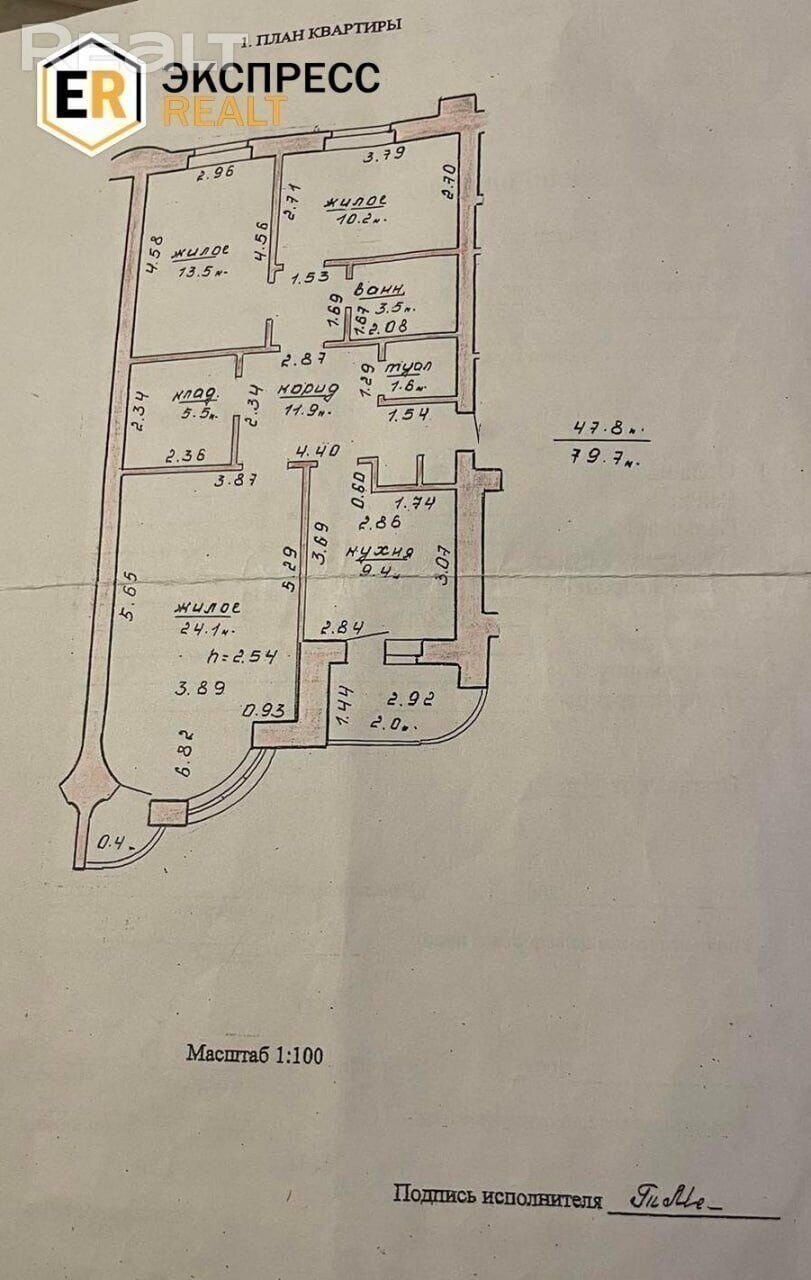 Realt
1. ПЛАН КВАРТИРЫ
ER ЭКСПРЕСС
REALT
2.96
3.79
2.70
2.71
жилое
10.2м.
4.58
4.56
жилое
13.5м.
1.53
ванн.
3.5м.
1.69
1.67
2.08
2.87
1.29
туал
1.6м.
2.34
клад.
5.5м.
2.34
корид
11.9м.
1.54
47.8м.
79.7м.
2.36
3.87
4.40
0.60
1.74
2.86
3.69
кухня
9.4м
3.07
5.29
5.65
жилое
24.1м.
2.84
h=2.54
3.89
0.93
1.44
2.92
2.0м.
6.82
0.4
Масштаб 1:100
Подпись исполнителя